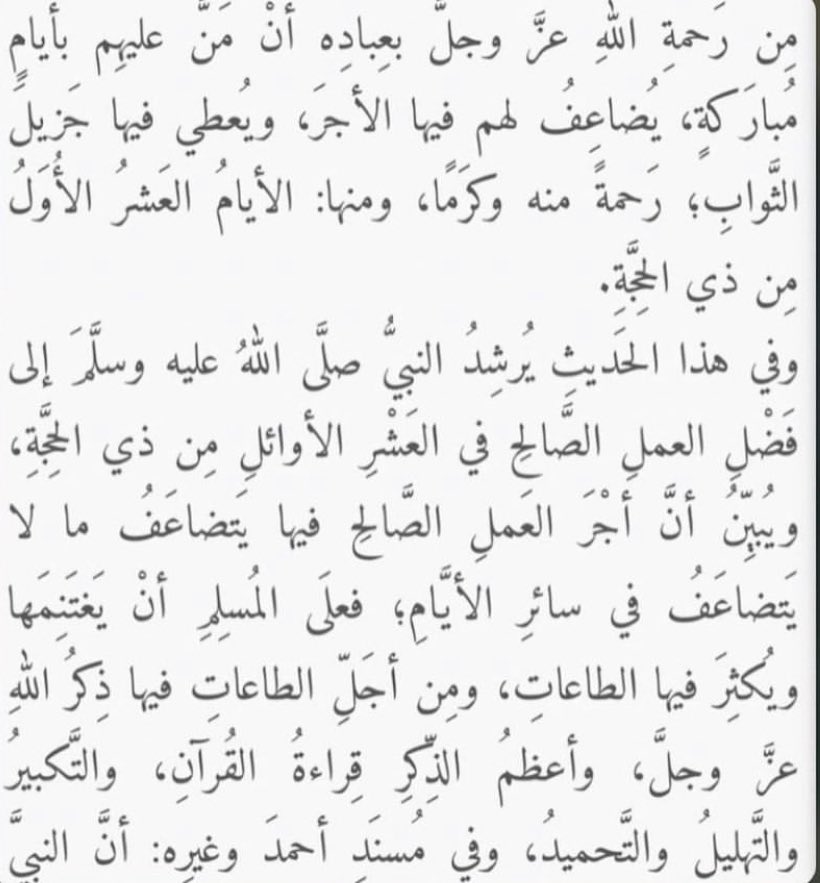 مِن رَحمةِ اللهِ عزَّ وجلَّ بعِبادِه أنْ مَنَّ عليهِم بأيامٍ
مُبارَكةٍ، يُضاعِفُ لهم فيها الأجرَ، ويُعطي فيها جَزيلَ
الثَّوابِ؛ رَحمةً منه وكرَمًا، ومنها: الأيامُ العَشرُ الأُوَلُ
مِن ذي الحِجَّةِ.
وفي هذا الحَديثِ يُرشِدُ النبيُّ صلَّى اللهُ عليه وسلَّمَ إلى
فَضْلِ العملِ الصَّالحِ في العَشْرِ الأوائلِ مِن ذي الحِجَّةِ،
ويُبيِّنُ أنَّ أجْرَ العَملِ الصَّالحِ فيها يَتضاعَفُ ما لا
يَتضاعَفُ في سائرِ الأيَّامِ؛ فعلَى المُسلِمِ أنْ يَغتَنِمَها
ويُكثِرَ فيها الطاعاتِ، ومِن أجَلِّ الطاعاتِ فيها ذِكرُ اللهِ
عزَّ وجلَّ، وأعظمُ الذِّكرِ قِراءةُ القُرآنِ، والتَّكبيرُ
والتَّهليلُ والتَّحميدُ، وفي مُسنَدِ أحمدَ وغيرِه: أنَّ النبيَّ